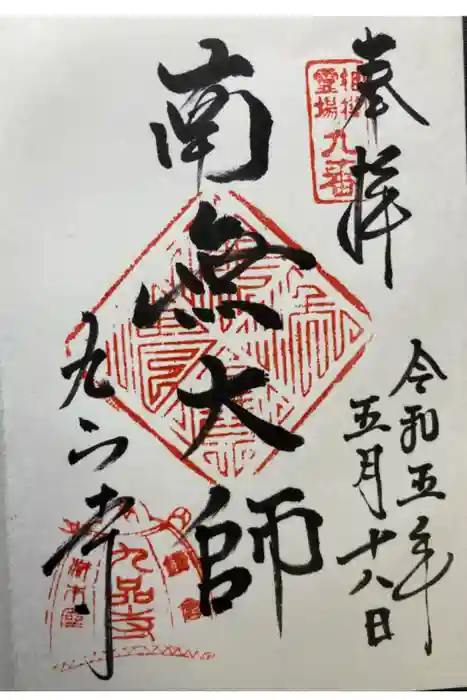 奉拝
相掛霊場九番
令和五年
五月十八日
南無大師
九品寺
九品寺